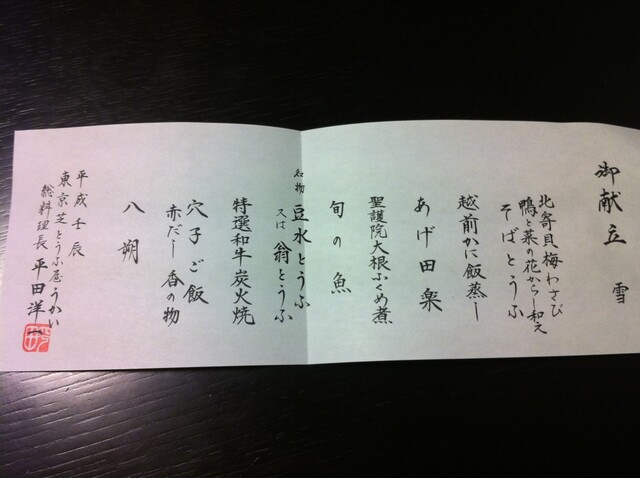 御献立　雪
北寄貝梅わさび
鴨と菜の花からし和え
そばとうふ
越前かに飯蒸し
あげ田楽
聖護院大根ふくめ煮
旬の魚
名物 豆水とうふ
又は 翁とうふ
特選和牛炭火焼
穴子ご飯
赤だし 香の物
八朔
平成壬辰
東京芝とうふ屋うかい
総料理長 平田洋一